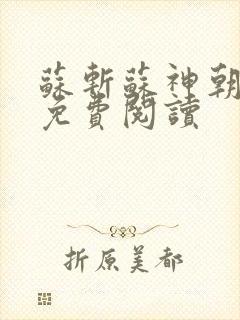 蘇斬蘇神朝
免費閱讀
折原美都